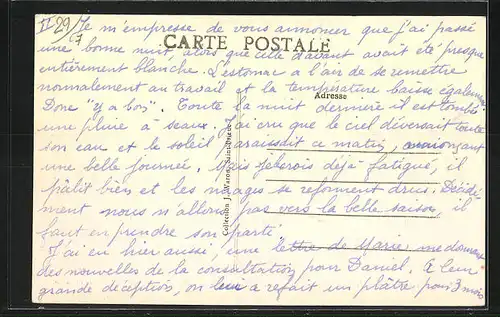 II 29/7 Je m'empresse de vous annoncer que j'ai passé
une bonne nuit, alors que celle d'avant avait été presque
CARTE POSTALE
entièrement blanche. L'estomac a l'air de se remettre
normalement au travail et la température baisse également
Adresse
Donc "y a bon". Toute la nuit dernière il est tombé
une pluie à seaux. J'ai cru que le ciel déversait toute
son eau et le soleil paraissait ce matin, annonçant
une belle journée. Mais Phébus déjà fatigué, il
pâlit bien et les nuages se reforment drus. Décidé-
ment nous n'allons pas vers la belle saison, il
faut en prendre son parti.
J'ai eu hier aussi, une lettre de Marie, me donnant
des nouvelles de la consultation pour Daniel. A leur
grande déception, on leur a refait un plâtre pour 3 mois
Collection J. Waron, Saint-Brieuc